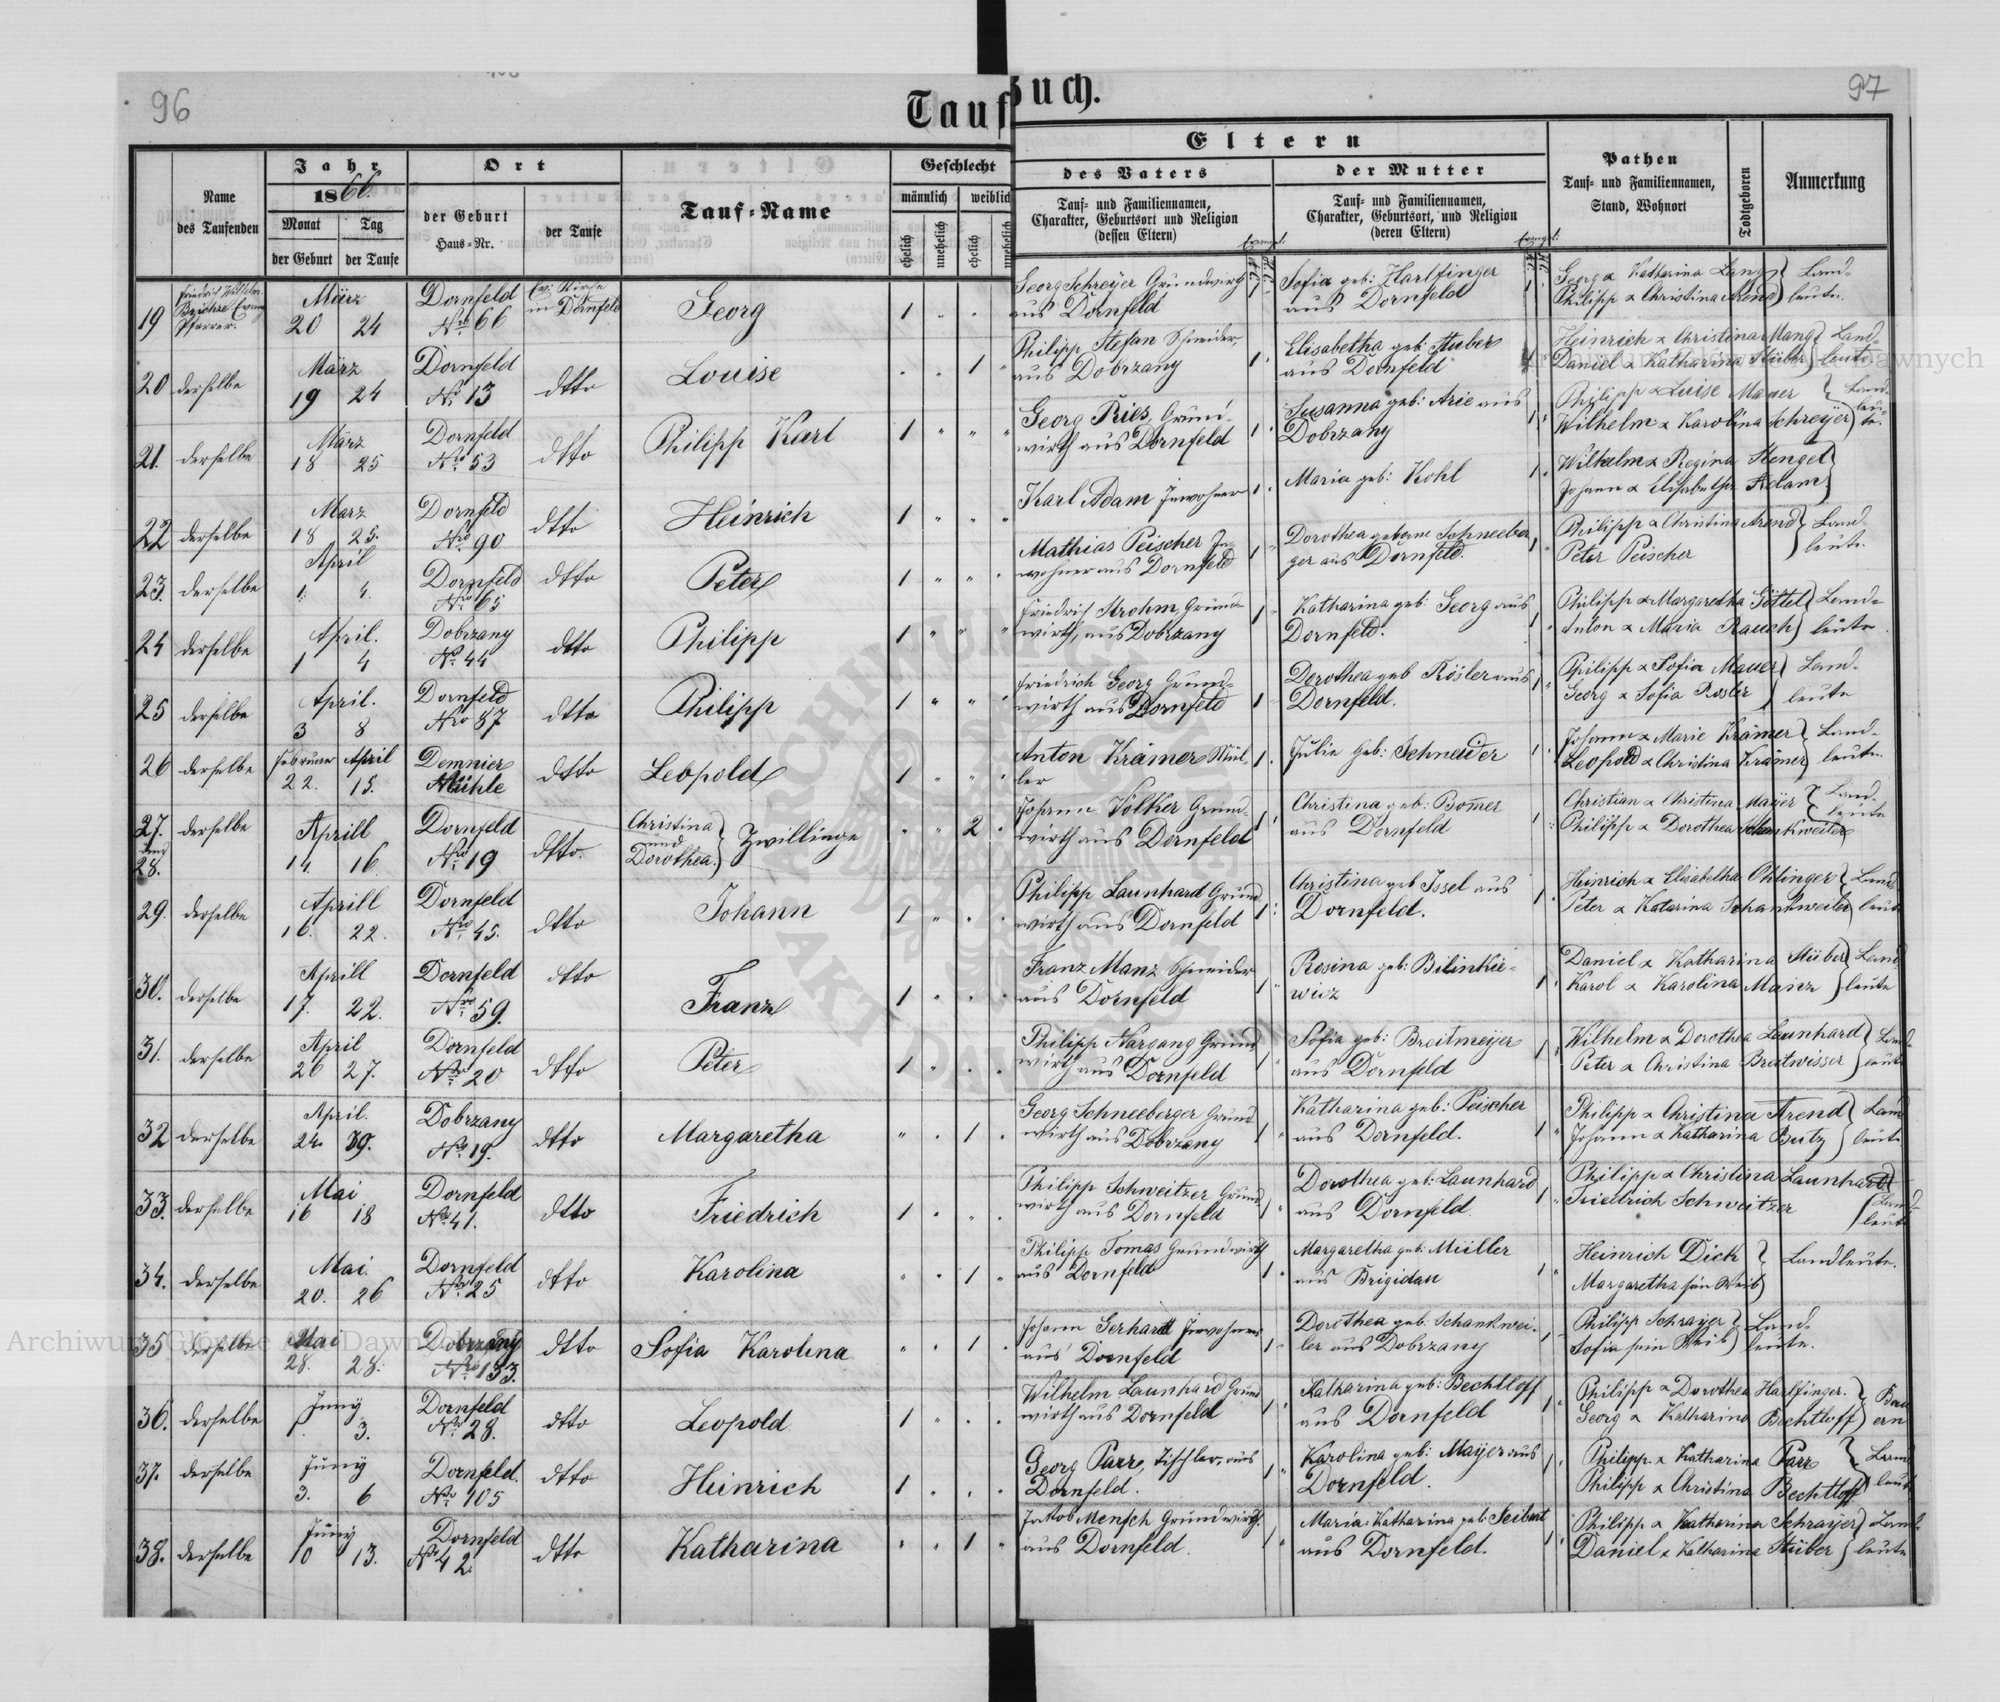 96
Taufbuch.
97
Name
des Taufenden
Jahr
1866.
Monat Tag
der Geburt der Taufe
Ort
der Geburt
Haus-Nr.
der Taufe
Tauf-Name
Geschlecht
männlich weiblich
ehelich unehelich ehelich unehelich
Eltern
des Vaters
Tauf- und Familiennamen,
Charakter, Geburtsort und Religion
(dessen Eltern)
der Mutter
Tauf- und Familiennamen,
Charakter, Geburtsort, und Religion
(deren Eltern)
Pathen
Tauf- und Familiennamen,
Stand, Wohnort
Todtgeboren
Anmerkung
19 Pfarrer. März 20 24 Dornfeld Nro 66 Ev: Kirche in Dornfeld Georg 1 Georg Schreyer Grundwirth aus Dornfeld 1 Sofia geb: Harlfinger aus Dornfeld 1 Georg & Katharina Lang Philipp & Christina Arend Landleute.
20 derselbe März 19 24 Dornfeld No 13 dtto Louise 1 Philipp Stefan Schneider, aus Dobrzany 1 Elisabetha geb: Stuber aus Dornfeld Heinrich & Christina Mang Daniel & Katharina Stüber Landleute
21. derselbe März 18 25 Dornfeld Nro 53 dtto Philipp Karl 1 Georg Ries, Grundwirth aus Dornfeld 1 Susanna geb: Arie aus Dobrzany 1 Philipp & Luise Mauer Wilhelm & Karolina Schreyer Landleute.
22 derselbe März 18 25. Dornfeld Nro 90 dtto Heinrich 1 Karl Adam Inwohner 1 Maria geb: Kohl 1 Wilhelm & Regina Stengel Johann & Elisabetha Adam
23. derselbe April 1. 4. Dornfeld Nro 65 dtto Peter 1 Mathias Peischer Inwohner aus Dornfeld 1 Dorothea geborne Schneeberger aus Dornfeld. 1 Philipp & Christina Arend Peter Peischer Landleute.
24 derselbe April. 1 4 Dobrzany No 44 dtto Philipp 1 Friedrich Strohm, Grundwirth, aus Dobrzany 1 Katharina geb: Georg aus Dornfeld. 1 Philipp & Margaretha Göttel Anton & Maria Rauch Landleute
25 derselbe April. 3 8 Dornfeld Nro 87 dtto Philipp 1 Friedrich Georg Grundwirth aus Dornfeld 1 Dorothea geb Rösler aus Dornfeld. 1 Philipp & Sofia Mauer Georg & Sofia Rosler Landleute
26 derselbe Februar April 22. 15. Demnier Mühle dtto Leopold 1 Anton Krämer Müller 1 Julie Geb: Schneider 1 Johann & Marie Krämer Leopold & Christina Krämer Landleute.
27. und 28. derselbe Aprill 14. 16. Dornfeld Nro 19 dtto. Christina und Dorothea. Zwillinge 2 Johann Völker Grundwirth aus Dornfeld 1 Christina geb: Bommer aus Dornfeld 1 Christian & Christina Mayer Philipp & Dorothea Schankweiler Landleute
29. derselbe Aprill 16. 22. Dornfeld Nro 45. dtto Johann 1 Philipp Launhard Grundwirth aus Dornfeld 1 Christina geb Issel aus Dornfeld. 1 Heinrich & Elisabetha Ohlinger Peter & Katarina Schankweiler Landleute
30. derselbe Aprill 17. 22. Dornfeld Nro 59. dtto Franz 1 Franz Manz Schneider aus Dornfeld 1 Rosina geb: Bilinkiewicz 1 Daniel & Katharina Stüber Karol & Karolina Manz Landleute
31. derselbe April 26 27. Dornfeld Nro 20 dtto Peter 1 Philipp Nargang Grundwirth aus Dornfeld 1 Sofia geb: Breitmeyer aus Dornfeld 1 Wilhelm & Dorothea Launhard Peter & Christina Breitwisser Landleute
32 derselbe April. 24. 29. Dobrzany No 19. dtto Margaretha 1 Georg Schneeberger Grundwirth aus Dobrzany 1 Katharina geb: Peischer aus Dornfeld. 1 Philipp & Christina Arend Johann & Katharina Butz Landleute
33. derselbe Mai 16 18 Dornfeld Nro 41. dtto Friedrich 1 Philipp Schweitzer Grundwirth aus Dornfeld 1 Dorothea geb: Launhard aus Dornfeld. 1 Philipp & Christina Launhard Friedrich Schweitzer Landleute
34. derselbe Mai. 20. 26 Dornfeld Nro 25 dtto Karolina 1 Philipp Tomas Grundwirth aus Dornfeld 1 Margaretha geb: Müller aus Brigidau 1 Heinrich Dick Margaretha sein Weib Landleute.
35 derselbe Mai 28. 28. Dobrzany No 133. dtto Sofia Karolina 1 Johann Gerhardt Inwohner aus Dornfeld 1 Dorothea geb. Schankweiler aus Dobrzany 1 Philipp Schrayer Sofia sein Weib Landleute.
36. derselbe Juny 1. 3. Dornfeld Nro 28. dtto Leopold 1 Wilhelm Launhard Grundwirth aus Dornfeld 1 Katharina geb: Bechtloff aus Dornfeld 1 Philipp & Dorothea Harlfinger. Georg & Katharina Bechtloff Bauern
37. derselbe Juny 3. 6 Dornfeld. No 105 dtto Heinrich 1 Georg Parr, Tischler, aus Dornfeld. 1 Karolina geb: Mayer aus Dornfeld. 1 Philipp & Katharina Parr Philipp & Christina Bechtloff Landleute
38. derselbe Juny 10 13. Dornfeld Nro 42. dtto Katharina 1 Jakob Mensch Grundwirth. aus Dornfeld. 1 Maria: Katharina geb: Seibert aus Dornfeld. 1 Philipp & Katharina Schrayer Daniel & Katharina Stüber Landleute